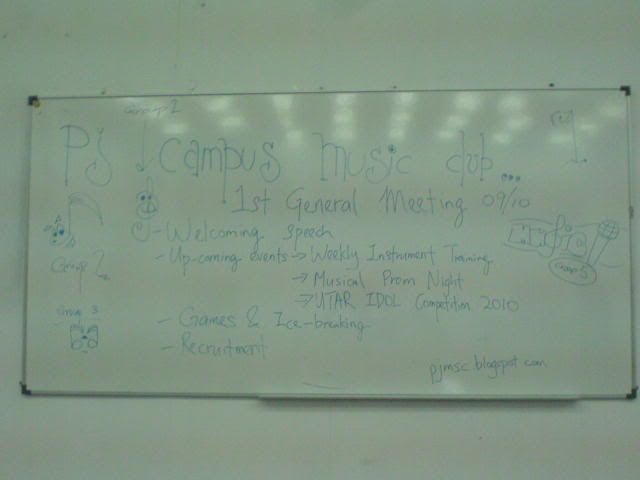 Group 1
PJ Campus music club...
1st General Meeting 09/10
- Welcoming speech
- Up-coming events → Weekly Instrument Training
→ Musical Prom Night
→ UTAR IDOL Competition 2010
- Games & Ice-breaking
- Recruitment
Group 2
Group 3
Music
Group 5
pjmsc.blogspot.com